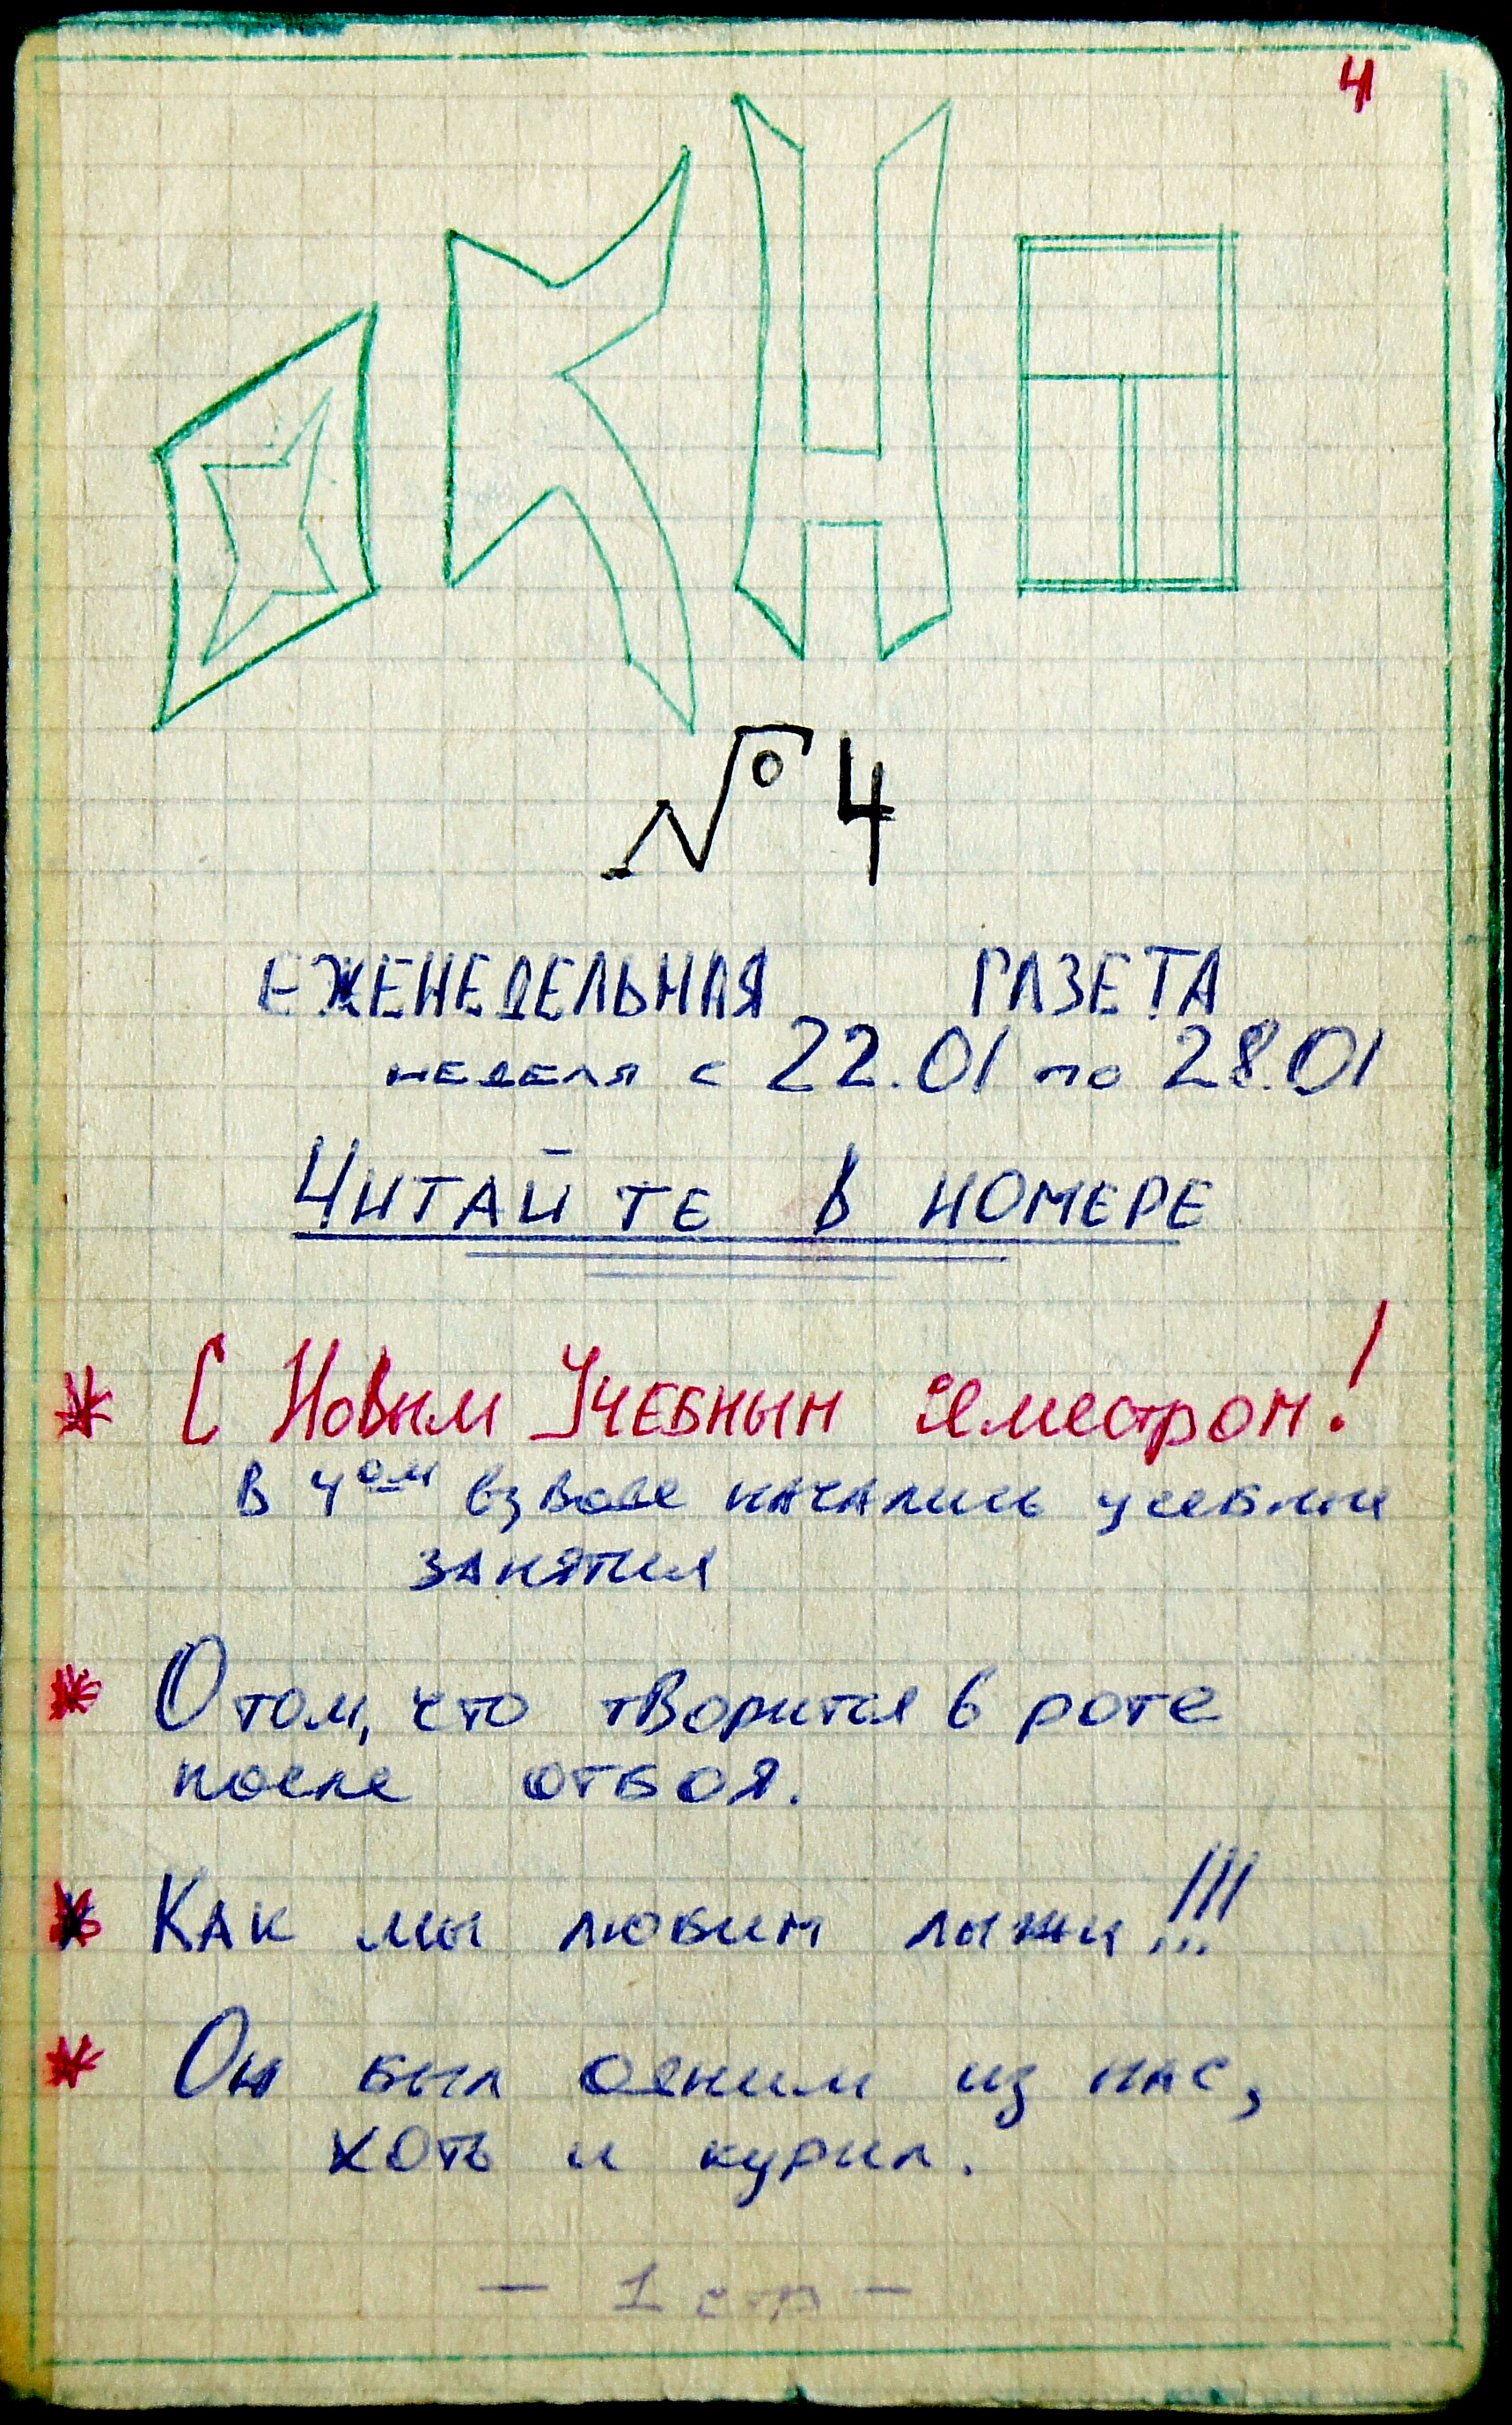 4
ОКНО
№ 4
ЕЖЕНЕДЕЛЬНАЯ ГАЗЕТА
неделя с 22.01 по 28.01
ЧИТАЙТЕ В НОМЕРЕ
* С Новым УЧЕБНЫМ семестром!
В 4ом взводе начались учебные
занятия
* О том, что творится в роте
после отбоя.
* Как мы любим лыжи!!!
* Он был одним из нас,
хоть и курил.
— 1 стр —